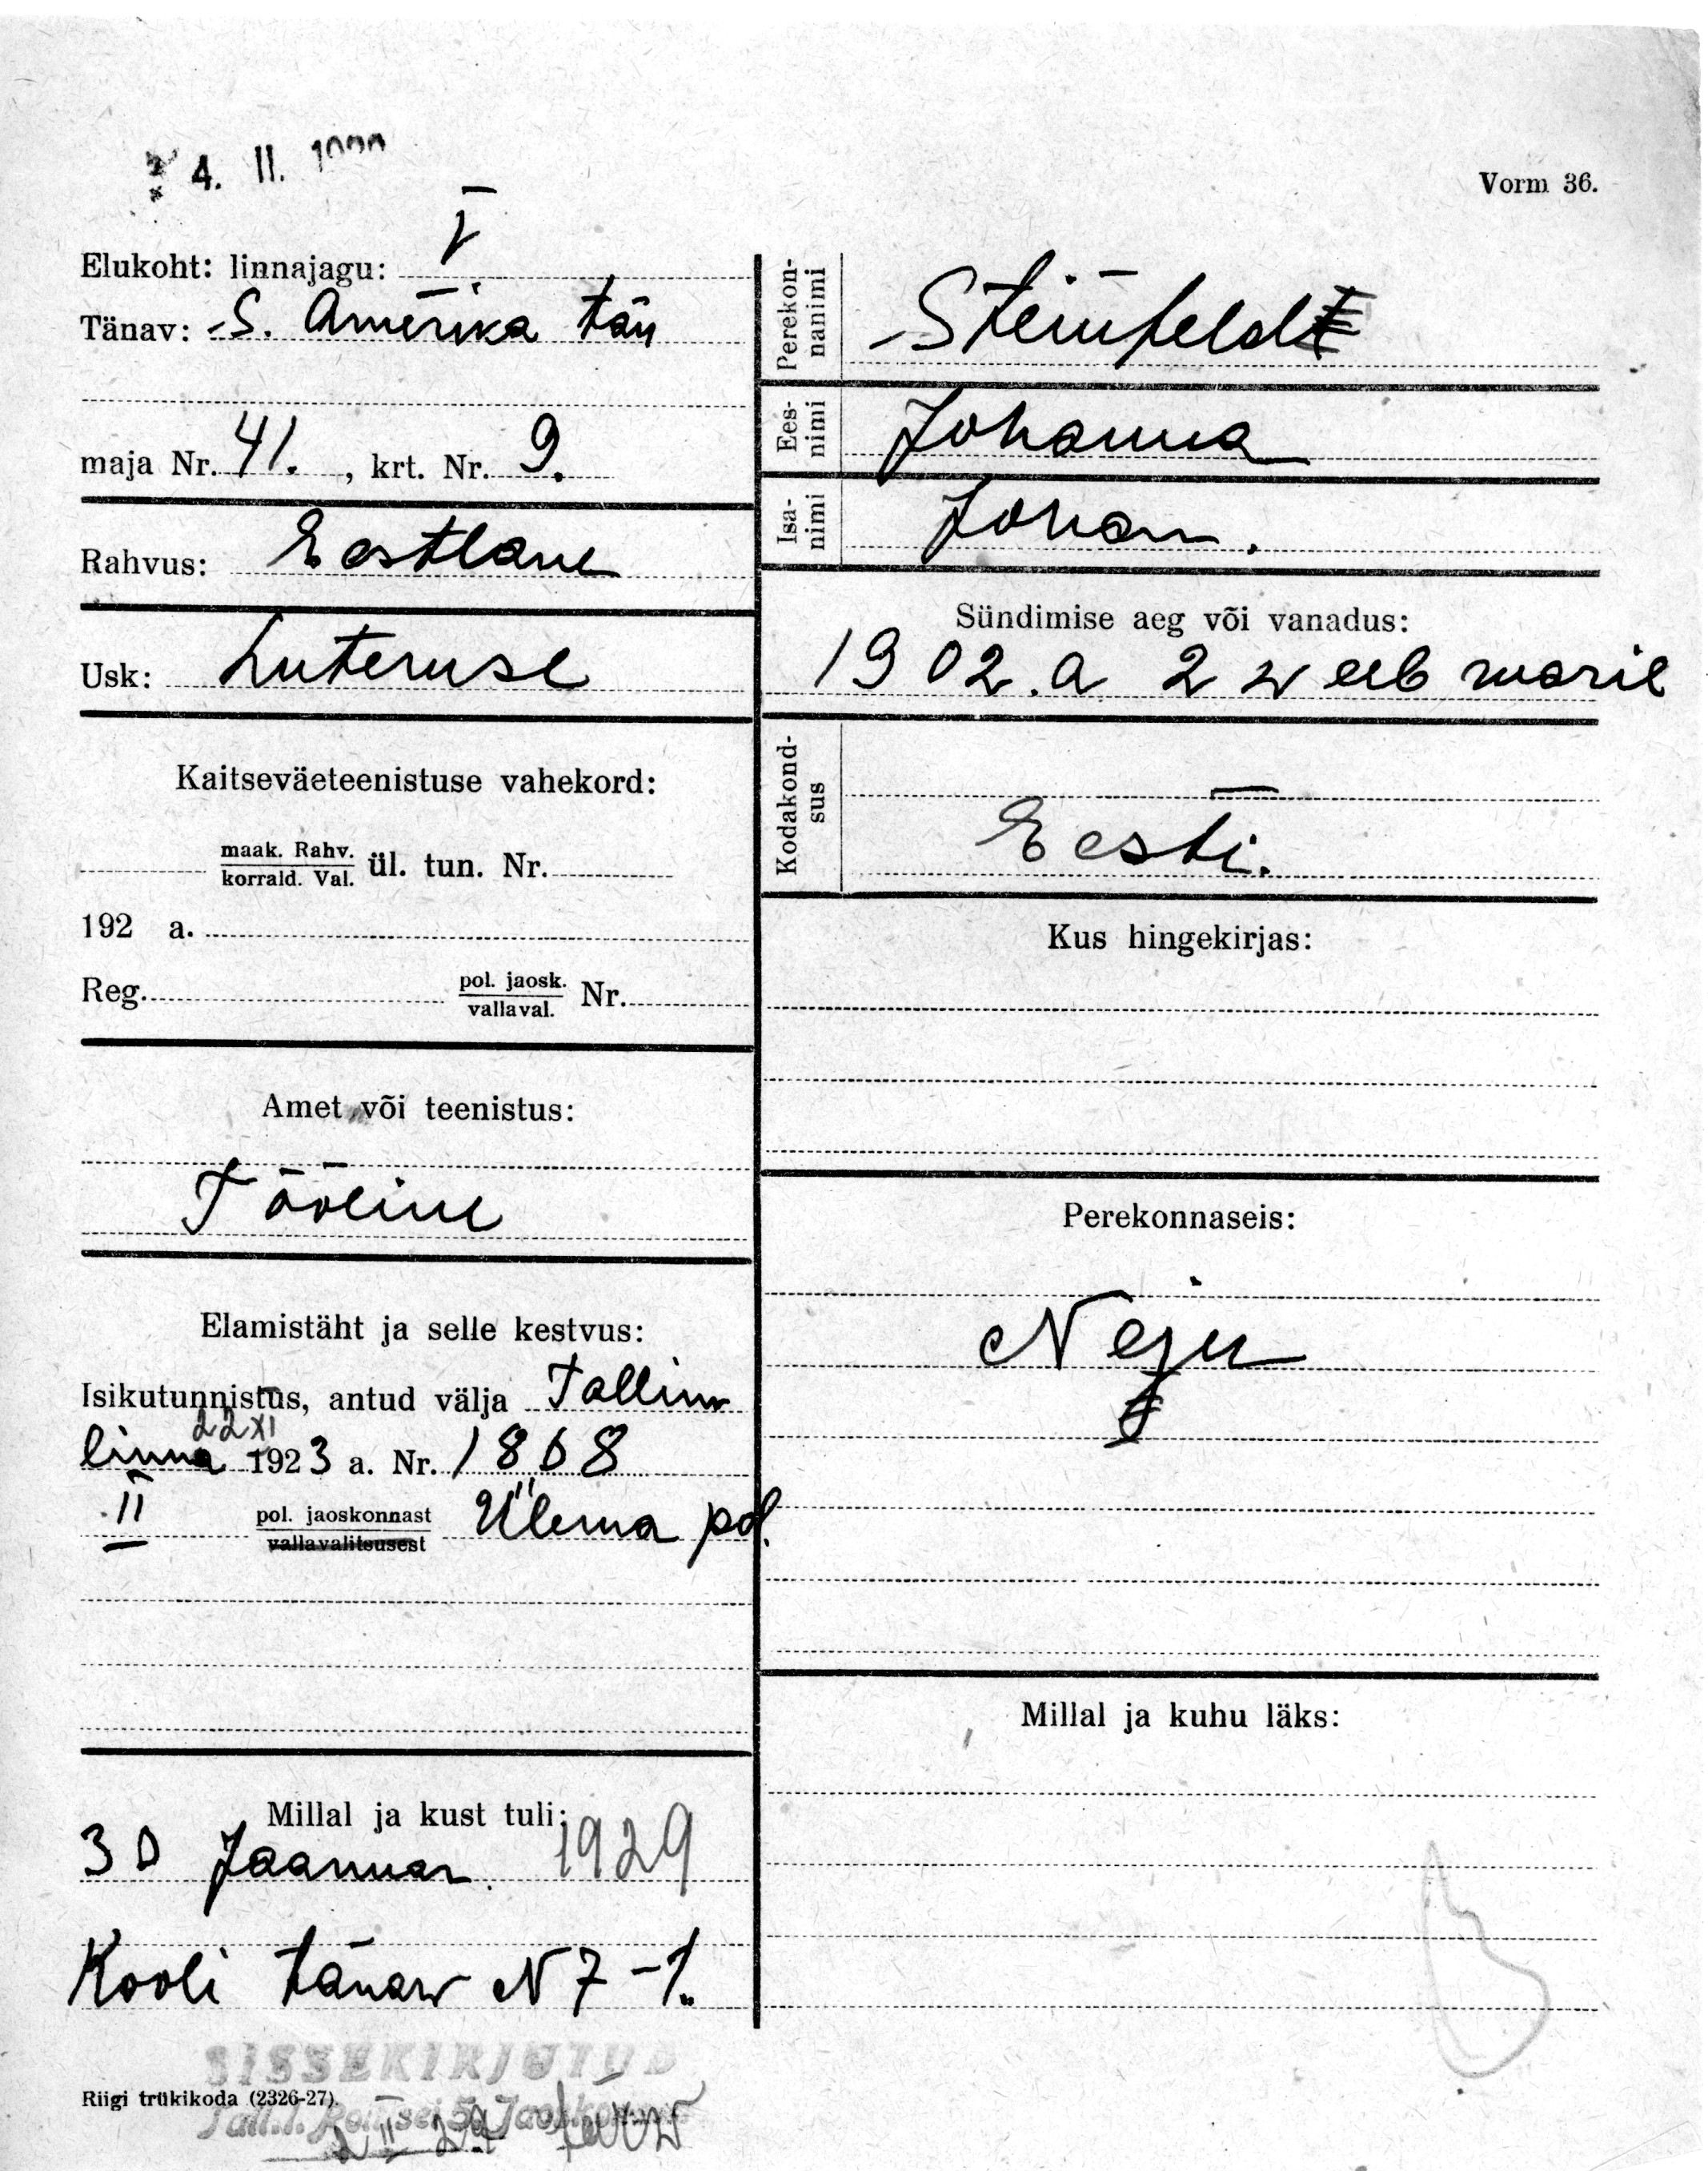 4. II.
Vorm 36.
Elukoht: linnajagu: V
Tänav: S. Amerika tän
maja Nr. 41. , krt. Nr. 9.
Rahvus: Eestlane
Usk: Luteruse
Kaitseväeteenistuse vahekord:
maak. Rahv.
korrald. Val. ül. tun. Nr.
192 a.
Reg. pol. jaosk.
vallaval. Nr.
Amet või teenistus:
Tööline
Elamistäht ja selle kestvus:
Isikutunnistus, antud välja Tallinn
22 XI
linna 1923 a. Nr. 1868
II pol. jaoskonnast Ülema pol.
vallavalitsusest
Millal ja kust tuli:
30 Jaanuar. 1929
Kooli tänaw N 7 - 1.
SISSEKIRJUTUD
Riigi trükikoda (2326-27).
Tall. l. Politsei 5. Jaoskonnas
Perekonnanimi Steinfeldt
Eesnimi Johanna
Isanimi Johan.
Sündimise aeg või vanadus:
1902.a 2 weebruaril
Kodakondsus
Eesti.
Kus hingekirjas:
Perekonnaseis:
Neju
Millal ja kuhu läks: